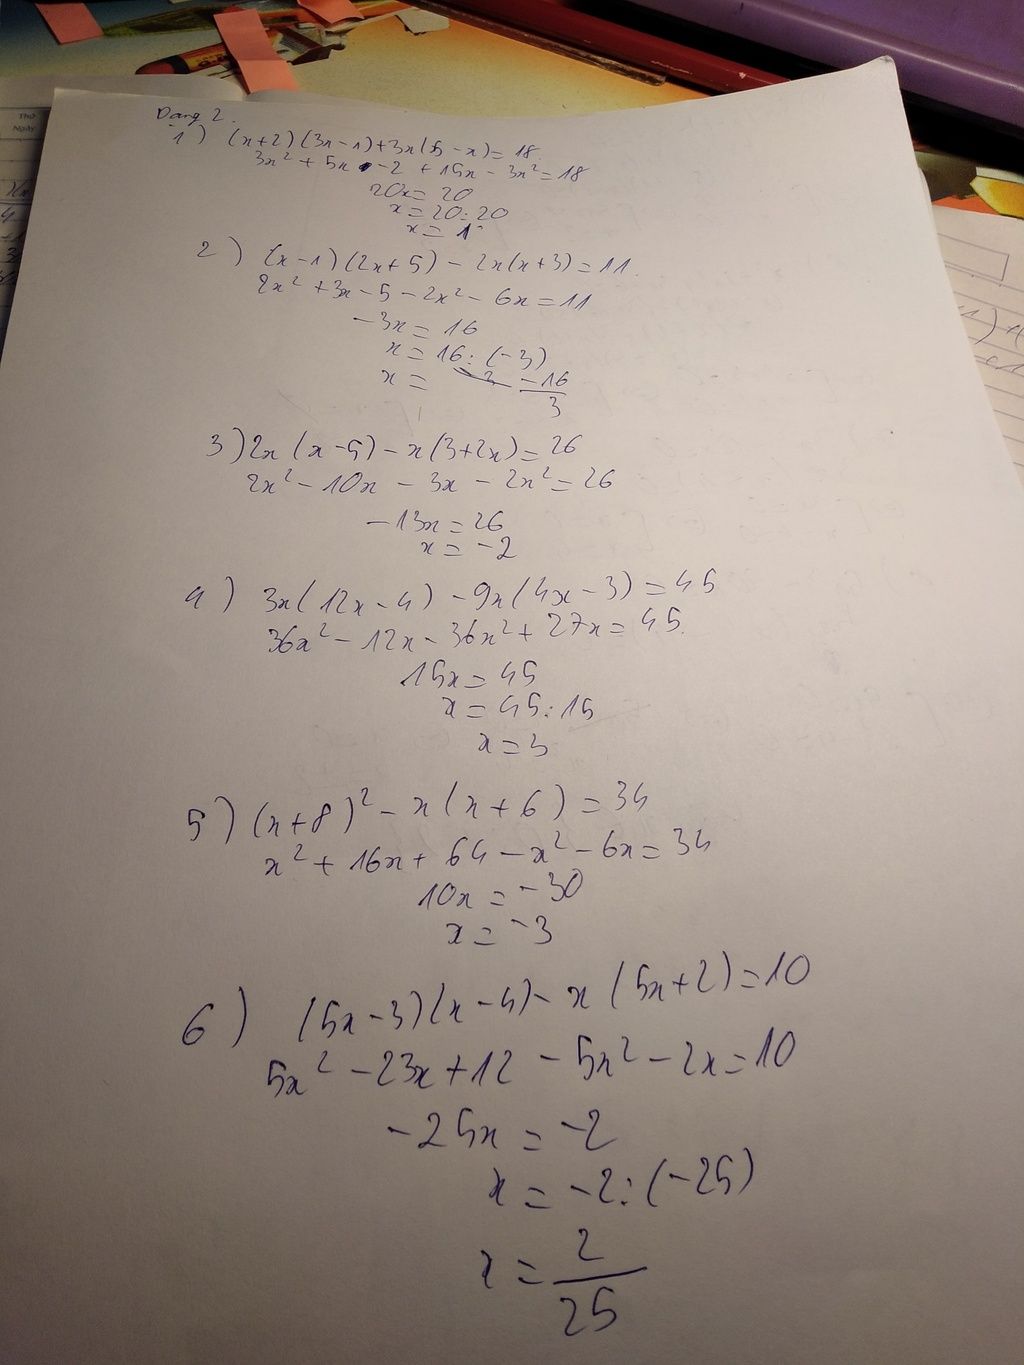 Dạng 2.
1) (x+2)(3x-1)+3x(5-x)=18
3x²+5x-2+15x-3x²=18
20x=20
x=20:20
x=1
2) (x-1)(2x+5)-2x(x+3)=11.
2x²+3x-5-2x²-6x=11
-3x=16
x=16:(-3)
x= -16/3
3) 2x(x-5)-x(3+2x)=26
2x²-10x-3x-2x²=26
-13x=26
x=-2
4) 3x(12x-4)-9x(4x-3)=45
36x²-12x-36x²+27x=45.
15x=45
x=45:15
x=3
5) (x+8)²-x(x+6)=34
x²+16x+64-x²-6x=34
10x=-30
x=-3
6) (5x-3)(x-4)-x(5x+2)=10
5x²-23x+12-5x²-2x=10
-25x=-2
x=-2:(-25)
x=2/25
Thứ
Ngày